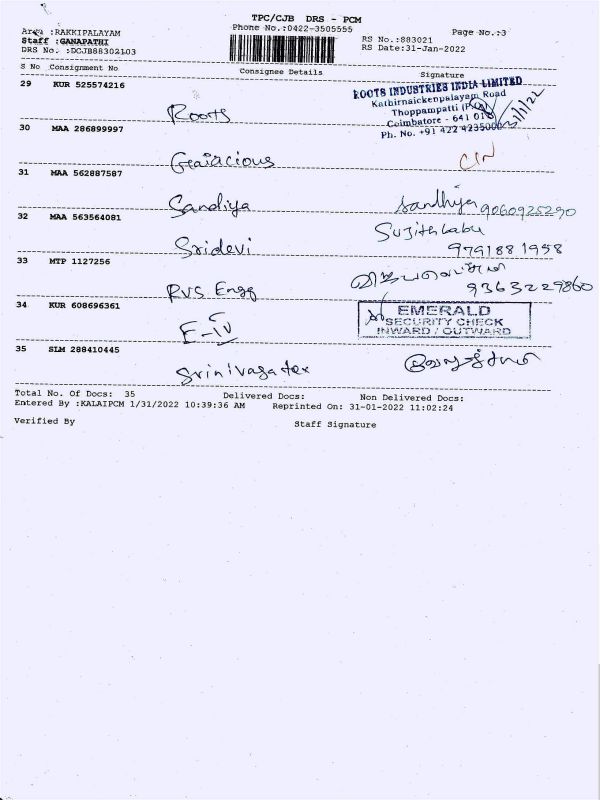 TPC/CJB DRS - PCM
Area :RAKKIPALAYAM Phone No.:0422-3505555 Page No.:3
Staff :GANAPATHI RS No.:883021
DRS No. :DCJB88302103 RS Date:31-Jan-2022
S No Consignment No Consignee Details Signature
29 KUR 525574216
ROOTS INDUSTRIES INDIA LIMITED
Kathirnaickenpalayam Road
Thoppampatti
Coimbatore - 641 018
Ph. No. +91 422 4235000
Roots
30 MAA 286899997
CIN
31 MAA 562887587
Sandiya Sandhiya 9060925290
32 MAA 563564081 Sujithbabu
Sridevi 9791881958
33 MTP 1127256
RVS Engg 9363229860
34 KUR 608696361
EMERALD
SECURITY CHECK
INWARD / OUTWARD
E-IV
35 SLM 288410445
Srinivasa tex
Total No. Of Docs: 35 Delivered Docs: Non Delivered Docs:
Entered By :KALAIPCM 1/31/2022 10:39:36 AM Reprinted On: 31-01-2022 11:02:24
Verified By Staff Signature